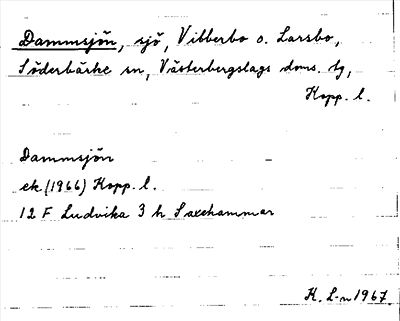 Dammsjön, sjö, Vibberbo o. Larsbo,
Söderbärke sn, Västerbergslags doms. tg,
Kopp. l.
Dammsjön
ek. (1966) Kopp. l.
12 F Ludvika 3 h Saxehammar
K. L-n 1967.